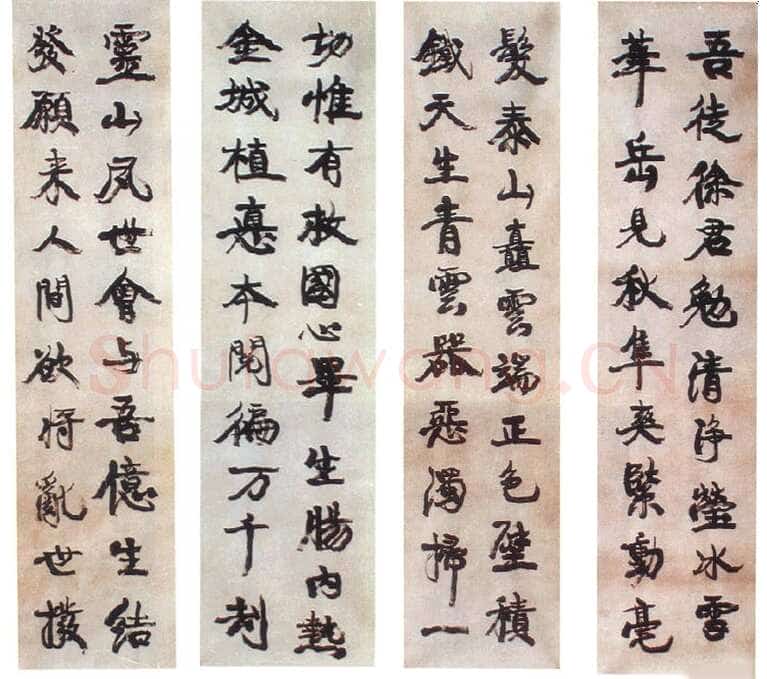 吾徒徐君勉清淨瑩冰雪
華岳見秋隼爽緊動毫
髮泰山矗雲端正色壁積
鐵天生青雲器惡濁掃一
切惟有救國心畢生腸內熱
金城植惪本閱徧万千刦
靈山夙世會与吾億生結
發願来人間欲将亂世撥
Shufawang.CN